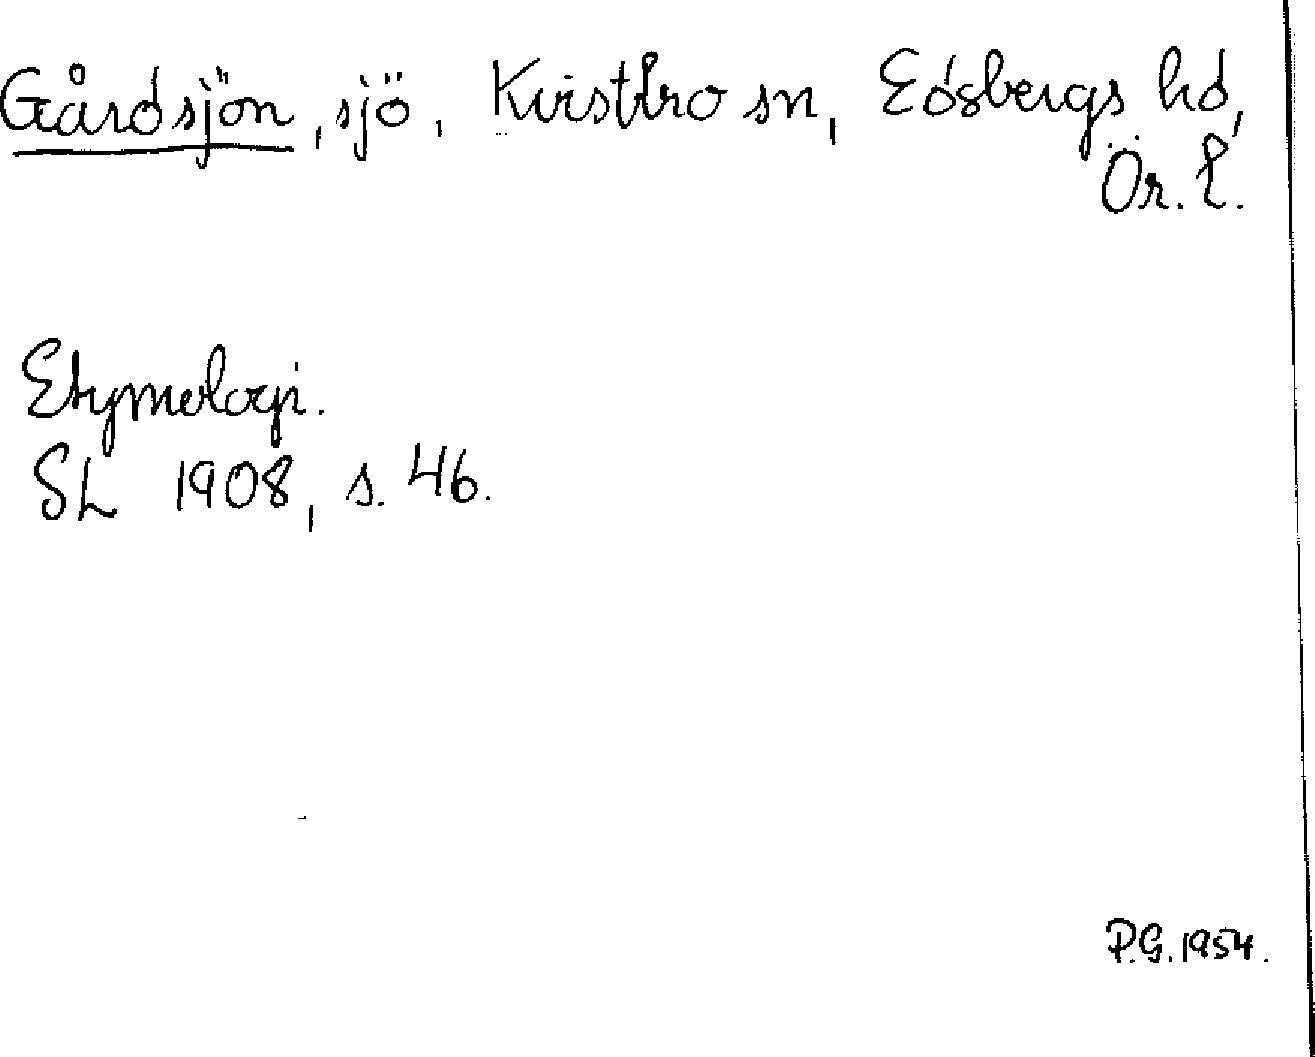 Gårdsjön, sjö, Kvistbro sn, Edsbergs hd,
Ör. l.
Etymologi.
SL 1908, s. 46.
P.G. 1954.